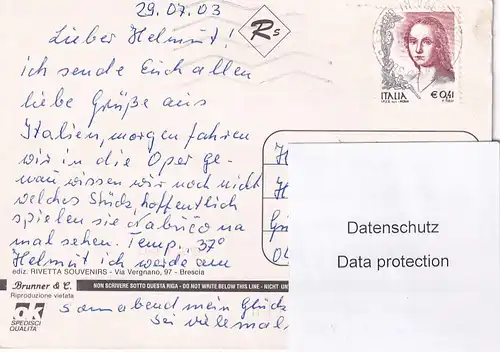 29.07.03
Lieber Helmut!
ich sende Euch allen
liebe Grüße aus
Italien, morgen fahren
wir in die Oper ge-
nau wissen wir noch nicht
welches Stück, hoffentlich
spielen sie Nabuco na
mal sehen. Temp. 37°
Helmut ich werde am
sonnabend mein Glück
sei vielemal
Rs
ITALIA
€ 0,41
H
H
ediz. RIVETTA SOUVENIRS - Via Vergnano, 97 - Brescia
Brunner & C.
Riproduzione vietata
NON SCRIVERE SOTTO QUESTA RIGA - DO NOT WRITE BELOW THIS LINE - NICHT
ok
SPEDISCI
QUALITÀ
Datenschutz
Data protection